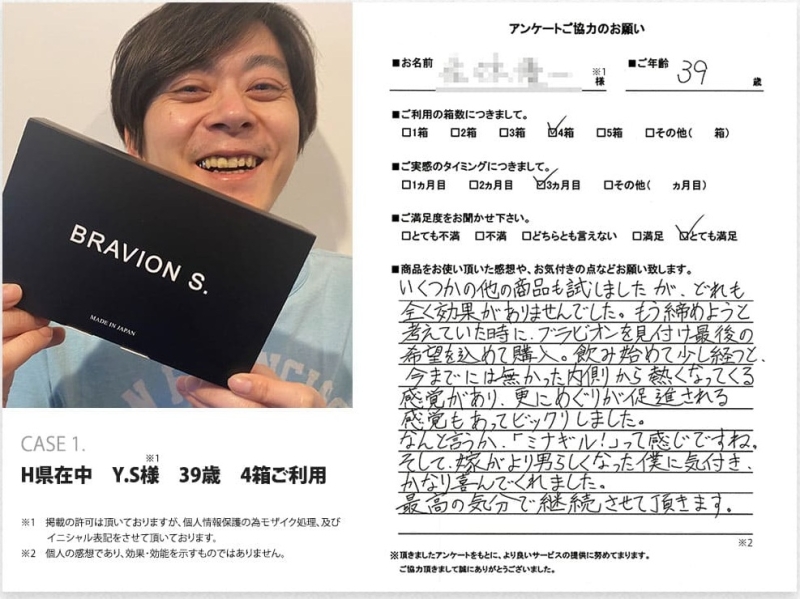 BRAVION S.
MADE IN JAPAN
CASE 1.
※1
H県在中 Y.S様 39歳 4箱ご利用
※1 掲載の許可は頂いておりますが、個人情報保護の為モザイク処理、及び
イニシャル表記をさせて頂いております。
※2 個人の感想であり、効果・効能を示すものではありません。
アンケートご協力のお願い
■お名前 ※1 様 ■ご年齢 39 歳
■ご利用の箱数につきまして。
□1箱 □2箱 □3箱 ☑4箱 □5箱 □その他( 箱)
■ご実感のタイミングにつきまして。
□1ヵ月目 □2ヵ月目 ☑3ヵ月目 □その他( ヵ月目)
■ご満足度をお聞かせ下さい。
□とても不満 □不満 □どちらとも言えない □満足 ☑とても満足
■商品をお使い頂いた感想や、お気付きの点などお願い致します。
いくつかの他の商品も試しましたが、どれも
全く効果がありませんでした。もう締めようと
考えていた時に、ブラビオンを見付け最後の
希望を込めて購入。飲み始めて少し経つと、
今までには無かった内側から熱くなってくる
感覚があり、更にめぐりが促進される
感覚もあってビックリしました。
なんと言うか、「ミナギル!」って感じですね。
そして、嫁がより男らしくなった僕に気付き、
かなり喜んでくれました。
最高の気分で継続させて頂きます。
※2
※頂きましたアンケートをもとに、より良いサービスの提供に努めてまります。
ご協力頂きまして誠にありがとうございました。